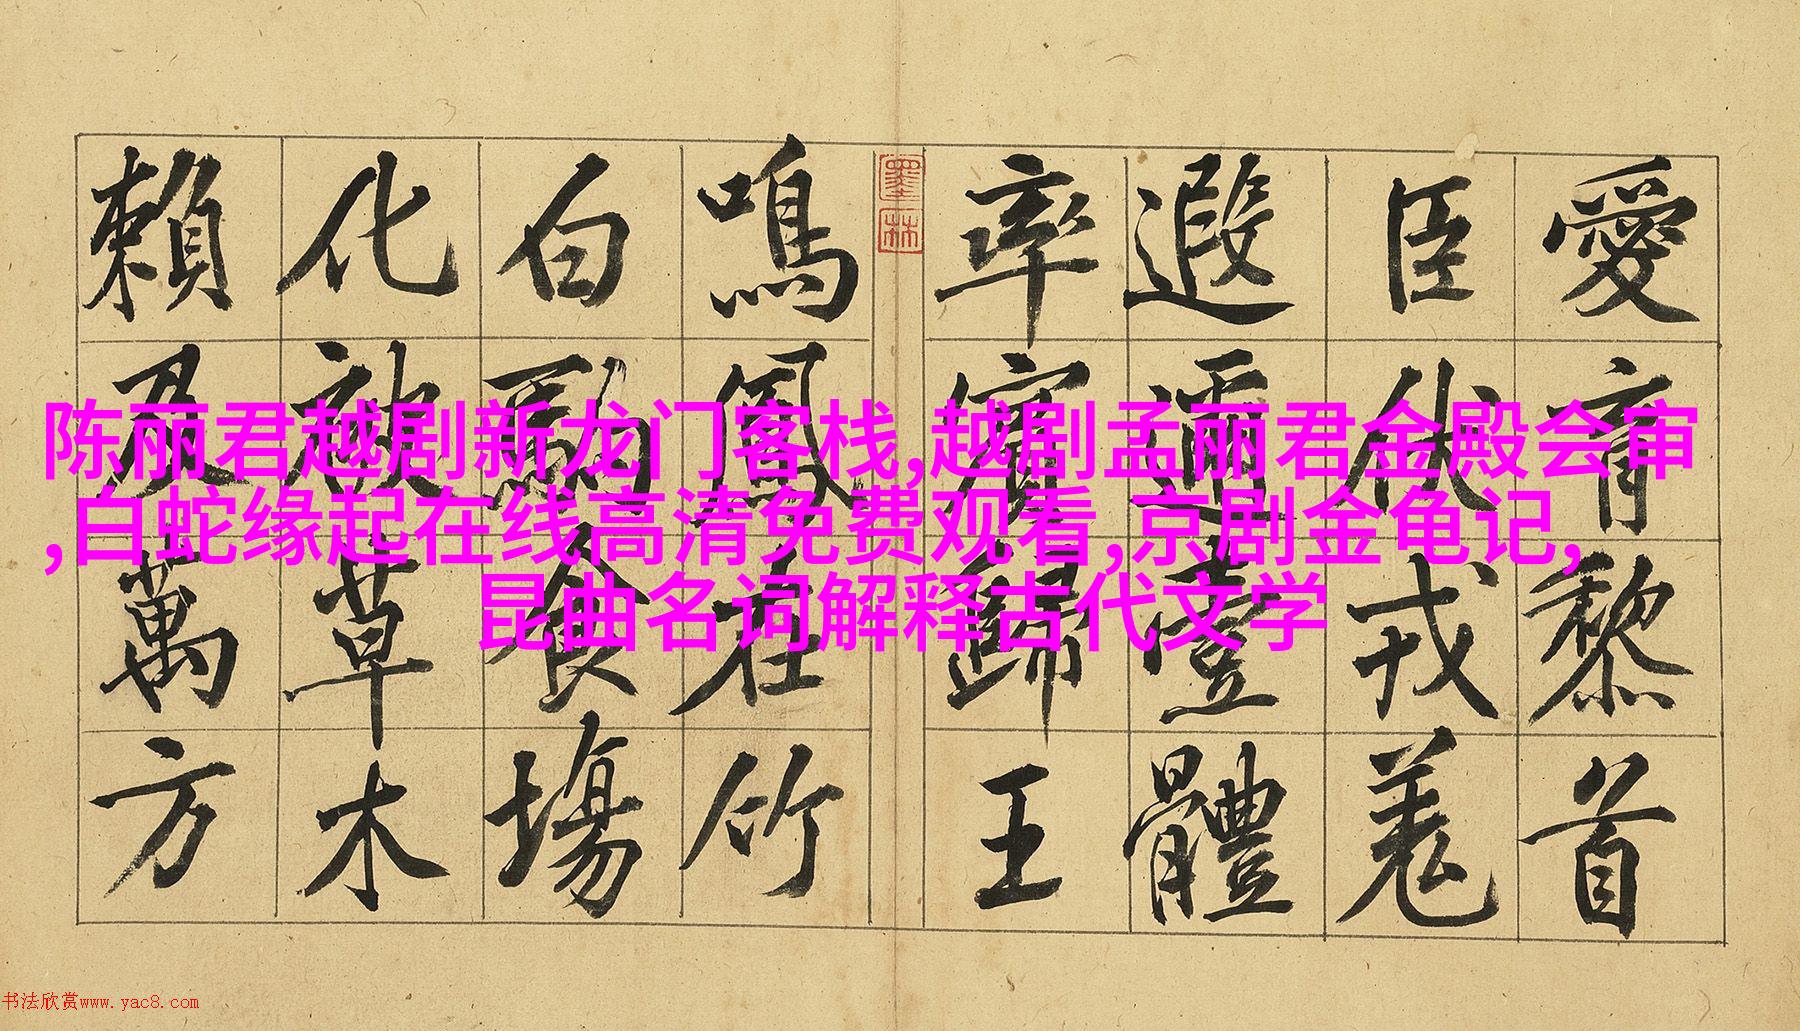 愛育黎首
臣伏戎羌
遐邇壹體
率賓歸王
墨林
鳴鳳在竹
白駒食場
化被草木
賴及萬方
陈丽君越剧新龙门客栈,越剧孟丽君金殿会审
,白蛇缘起在线高清免费观看,京剧金龟记,
昆曲名词解释古代文学
书法欣赏www.yac8.com